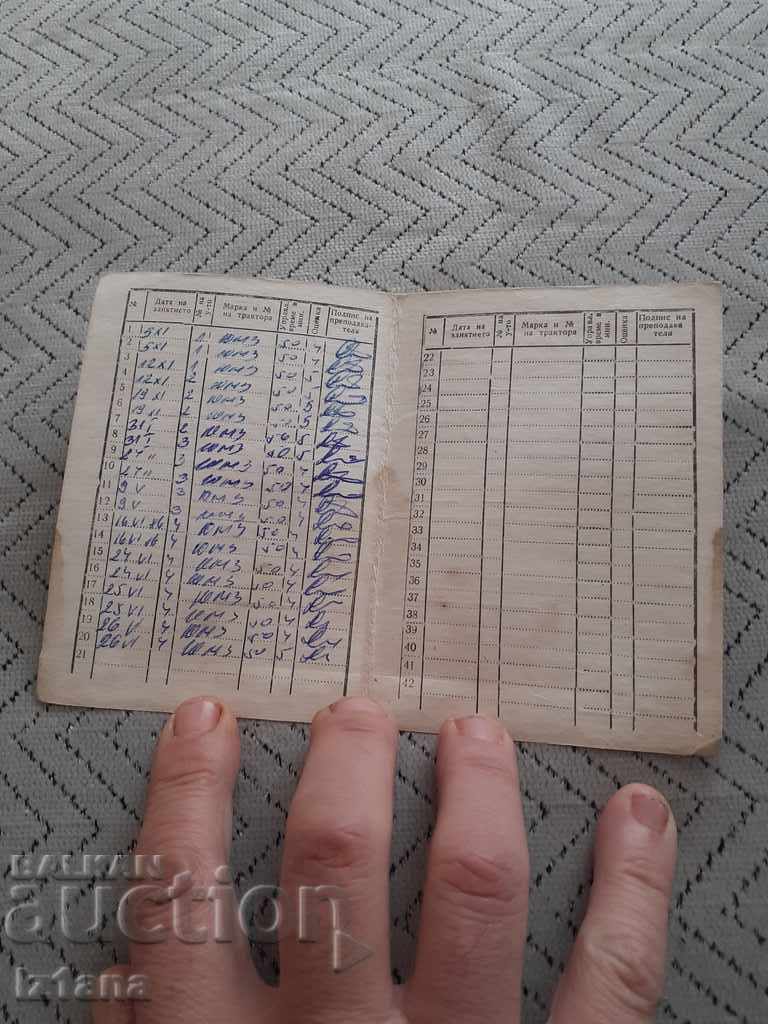 № Дата на занятието № на у-то Марка и № на трактора Управл. време в мин. Оценка Подпис на преподавателя
1 5 XI 1 ЮМЗ 50 4
2 5 XI 1 ЮМЗ 50 4
3 12 XI 1 ЮМЗ 50 5
4 12 XI 2 ЮМЗ 50
5 19 XI 2 ЮМЗ 50 5
6 19 II 2 ЮМЗ 50 5
7 31 I 2 ЮМЗ 50 5
8 31 I 3 ЮМЗ 50 5
9 27 II 3 ЮМЗ 50 4
10 27 II 3 ЮМЗ 50 4
11 9 V 3 ЮМЗ 50 4
12 9 V 3 ЮМЗ 50 4
13 16 VI 86 4 ЮМЗ 50 4
14 16 VI 86 4 ЮМЗ 50 4
15 24 VI 4 ЮМЗ 50 4
16 24 VI 4 ЮМЗ 50 4
17 25 VI 4 ЮМЗ 50 4
18 25 VI 4 ЮМЗ 50 4
19 26 VI 4 ЮМЗ 50 4
20 26 VI 4 ЮМЗ 50 5
21
№ Дата на занятието № на у-то Марка и № на трактора Управл. време в мин. Оценка Подпис на преподавателя
22
23
24
25
26
27
28
29
30
31
32
33
34
35
36
37
38
39
40
41
42
BALKAN
auction
Iz1ana